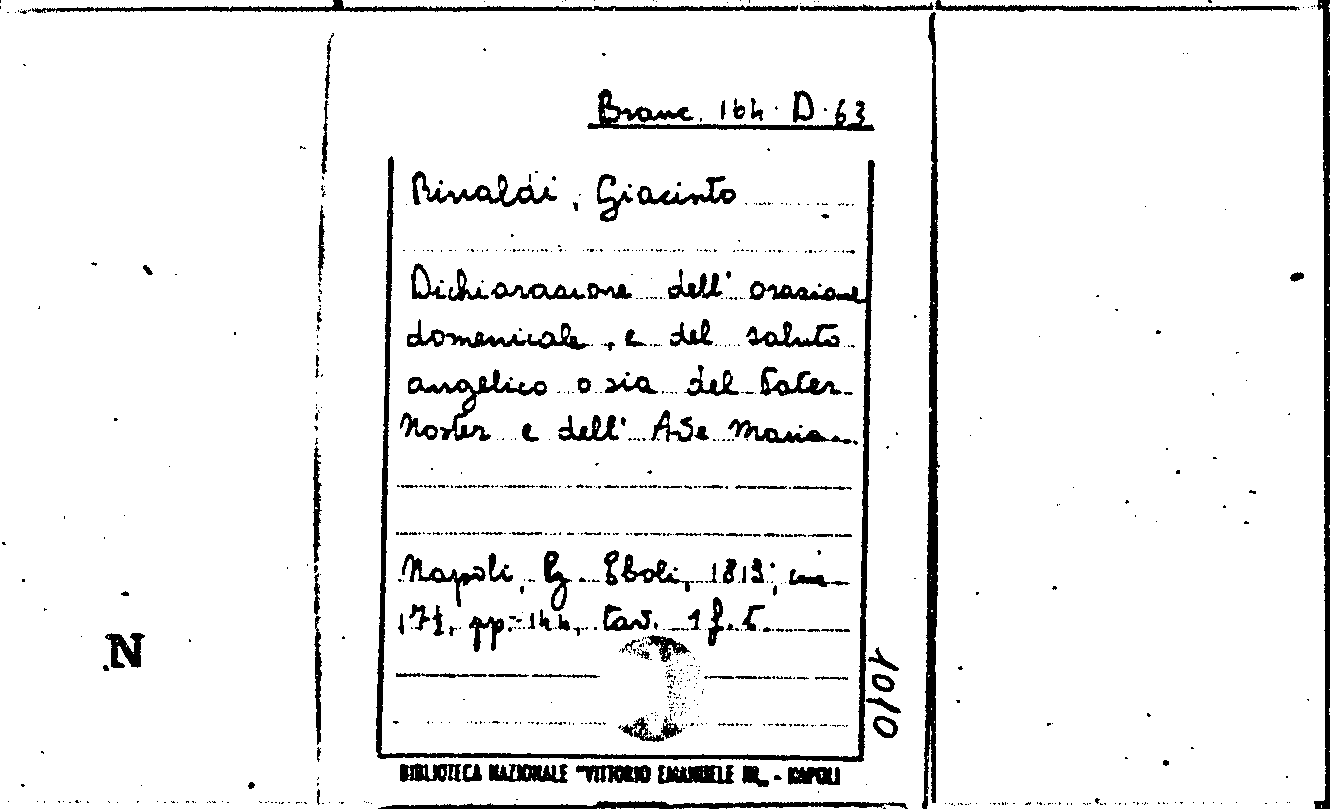 Branc. 164. D. 63
Rinaldi, Giacinto
Dichiarazione dell' orazione
domenicale, e del saluto
angelico o sia del Pater
Noster e dell' Ave Maria
Napoli, Eboli, 1813; cm
17½, pp. 144, tav. 1 f. t.
1010
N
BIBLIOTECA NAZIONALE "VITTORIO EMANUELE III„ - NAPOLI